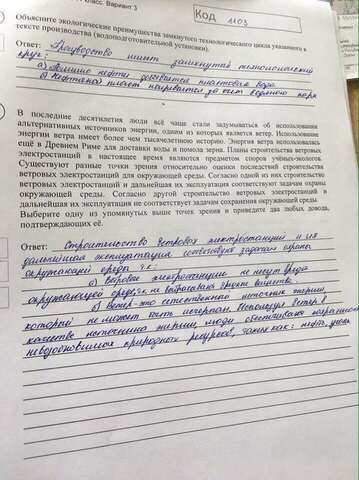 класс. Вариант 3
Код 1103
Объясните экологические преимущества замкнутого технологического цикла указанного в
тексте производства (водоподготовительной установки).
Ответ: Производство имеет замкнутый технологический
цикл:
а) Помимо нефти добывается пластовая вода
б) Нефтяной пласт нагревается за счёт водяного пара
В последние десятилетия люди всё чаще стали задумываться об использовании
альтернативных источников энергии, одним из которых является ветер. Использование
энергии ветра имеет более чем тысячелетнюю историю. Энергия ветра использовалась
ещё в Древнем Риме для доставки воды и помола зерна. Планы строительства ветровых
электростанций в настоящее время являются предметом споров учёных-экологов.
Существуют разные точки зрения относительно оценки последствий строительства
ветровых электростанций для окружающей среды. Согласно одной из них строительство
ветровых электростанций и дальнейшая их эксплуатация соответствуют задачам охраны
окружающей среды. Согласно другой строительство ветровых электростанций и
дальнейшая их эксплуатация не соответствует задачам сохранения окружающей среды.
Выберите одну из упомянутых выше точек зрения и приведите два любых довода,
подтверждающих её.
Ответ: Строительство ветровых электростанций и их
дальнейшая эксплуатация соответствуют задачам охраны
окружающей среды т.к.
а) Ветровые электростанции не несут вреда
окружающей среде, т.к. не выбрасывают вредные вещества
б) Ветер - это естественный источник энергии,
который не может быть исчерпан. Используя ветер в
качестве источника энергии, люди
невозобновимых природных ресурсов, таких как: нефть, уголь